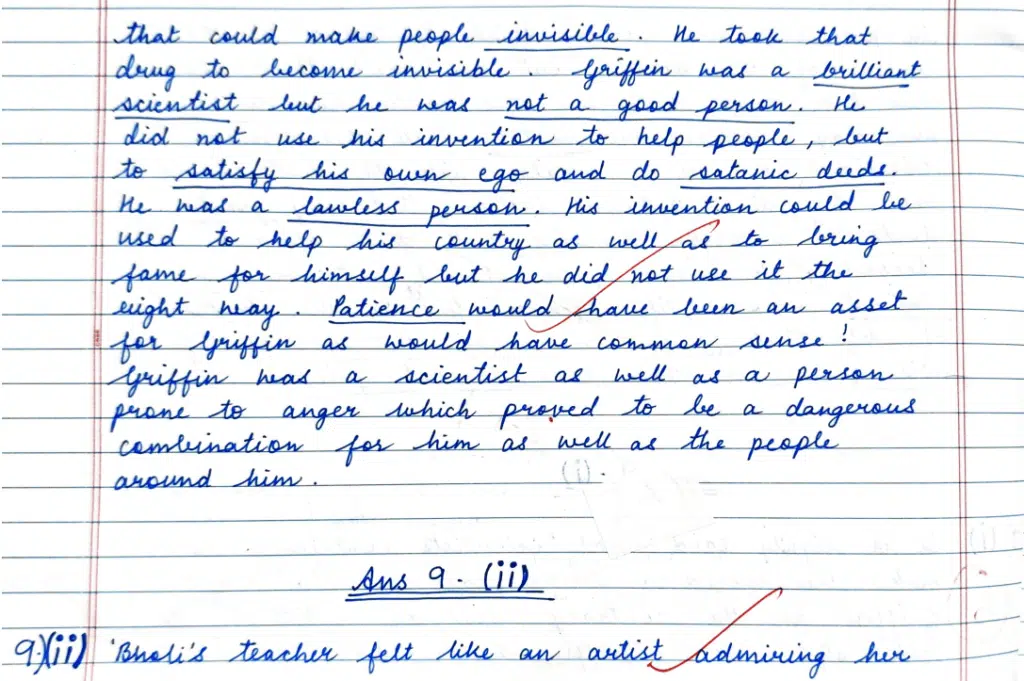 that could make people invisible. He took that
drug to become invisible. Griffin was a brilliant
scientist but he was not a good person. He
did not use his invention to help people, but
to satisfy his own ego and do satanic deeds.
He was a lawless person. His invention could be
used to help his country as well as to bring
fame for himself but he did not use it the
right way. Patience would have been an asset
for Griffin as would have common sense!
Griffin was a scientist as well as a person
prone to anger which proved to be a dangerous
combination for him as well as the people
around him.
Ans 9. (ii)
9.)(ii) 'Bholi's teacher felt like an artist admiring her